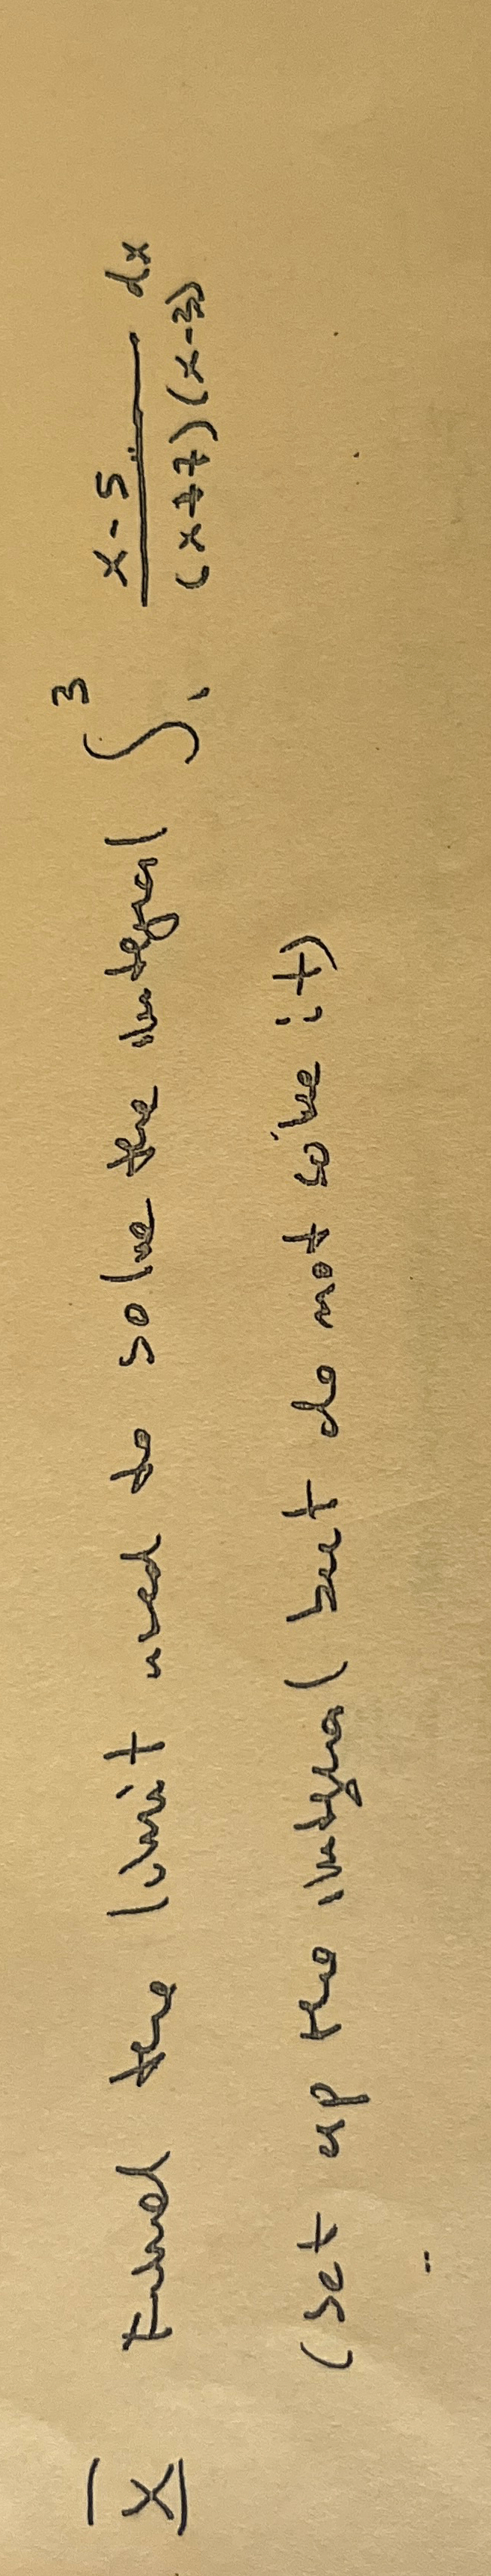 X Find the limit used to solve the integral ∫₁³ (x-5)/((x+7)(x-3)) dx
(set up the integral but do not solve it)